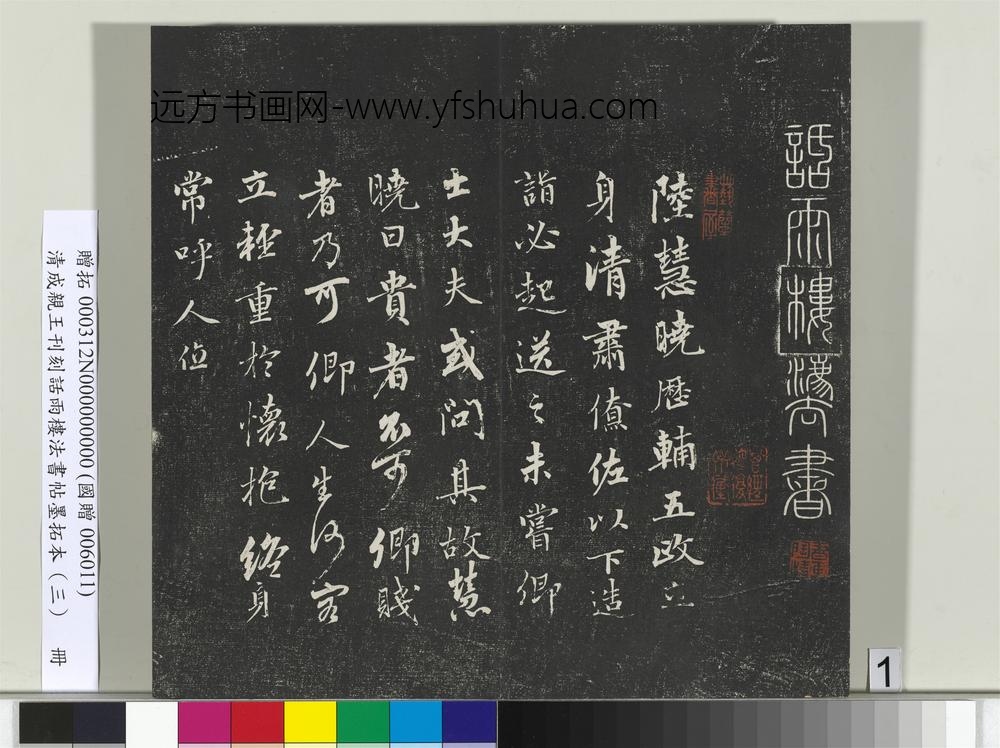 远方书画网-www.yfshuhua.com
話雨樓法書
陸慧曉歷輔五政立
身清肅僚佐以下造
詣必起送之未嘗卿
士大夫或問其故慧
曉曰貴者不可卿賤
者乃可卿人生何容
立輕重於懷抱終身
常呼人位
贈拓 000312N000000000 (國贈 006011)
清成親王刊刻話雨樓法書帖墨拓本（三） 冊
1